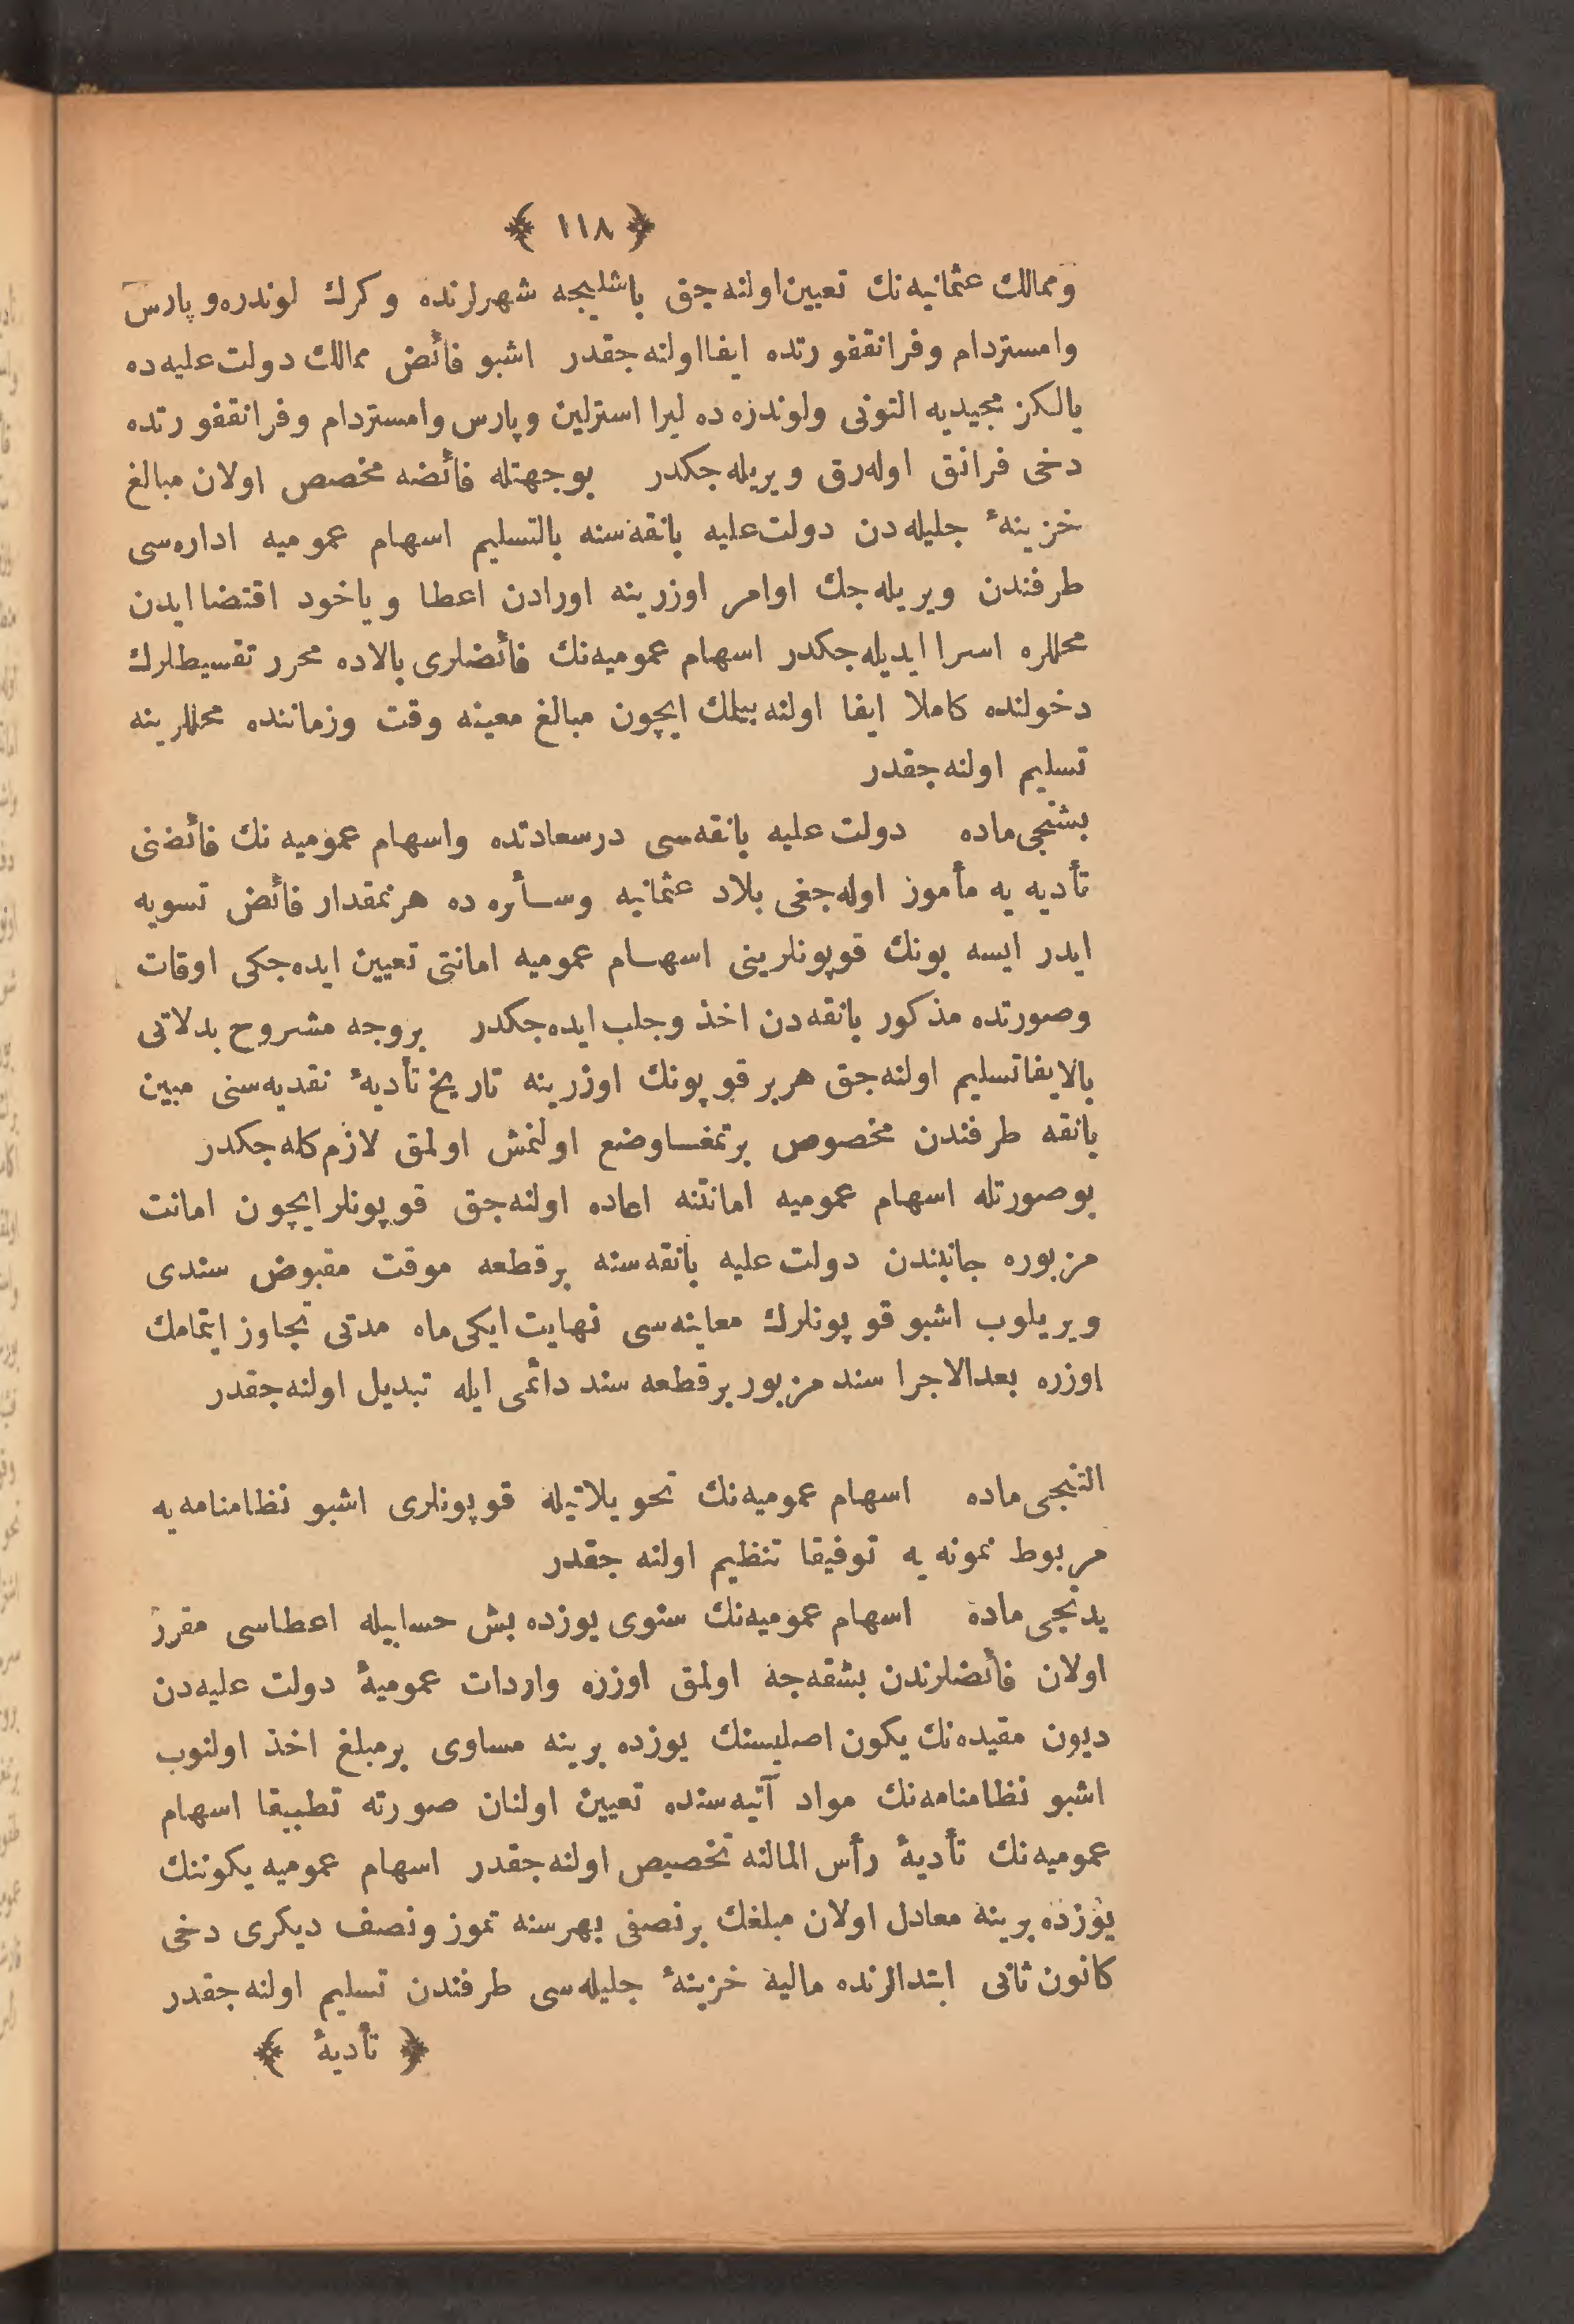 ﴿ ١١٨ ﴾
وممالك عثمانیه‌نك تعیین اولنه‌جق باشلیجه شهرلرنده وكرك لوندره و پارس
وامستردام وفرانقفورتده ایفا اولنه‌جقدر اشبو فائض ممالك دولت علیه‌ده
یالكز مجیدیه التونی ولوندره‌ده لیرا استرلین و پارس وامستردام وفرانقفورتده
دخی فرانق اوله‌رق ویریله‌جكدر بوجهتله فائضه مخصص اولان مبالغ
خزینهٔ جلیله‌دن دولت علیه بانقه‌سنه بالتسلیم اسهام عمومیه اداره‌سی
طرفندن ویریله‌جك اوامر اوزرینه اورادن اعطا ویاخود اقتضا ایدن
محللره اسرا ایدیله‌جكدر اسهام عمومیه‌نك فائضلری بالاده محرر تقسیطلرك
دخولنده كاملا ایفا اولنه‌بیلمك ایچون مبالغ معینه وقت وزماننده محللرینه
تسلیم اولنه‌جقدر
بشنجی ماده دولت علیه بانقه‌سی درسعادتده واسهام عمومیه نك فائضنی
تأدیه یه مأموز اوله‌جغی بلاد عثمانیه وسـأره ده هرنمقدار فائض تسویه
ایدر ایسه بونك قوپونلرینی اسهـام عمومیه امانتی تعیین ایده‌جكی اوقات
وصورتده مذكور بانقه‌دن اخذ وجلب ایده‌جكدر بروجه مشروح بدلاتی
بالایفا تسلیم اولنه‌جق هربر قوپونك اوزرینه تاریخ تأدیهٔ نقدیه‌سنی مبین
بانقه طرفندن مخصوص برتمغـا وضع اولنمش اولمق لازم كله‌جكدر
بوصورتله اسهام عمومیه امانتنه اعاده اولنه‌جق قوپونلر ایچون امانت
مزبوره جانبندن دولت علیه بانقه‌سنه برقطعه موقت مقبوض سندی
ویریلوب اشبو قوپونلرك معاینه‌سی نهایت ایكی ماه مدتی تجاوز ایتمامك
اوزره بعدالاجرا سند مزبور برقطعه سند دائمی ایله تبدیل اولنه‌جقدر
التنجی ماده اسهام عمومیه‌نك تحویلاتیله قوپونلری اشبو نظامنامه‌یه
مربوط نمونه یه توفیقا تنظیم اولنه جقدر
یدنجی ماده اسهام عمومیه‌نك سنوی یوزده بش حسابیله اعطاسی مقرر
اولان فائضلرندن بشقه‌جه اولمق اوزره واردات عمومیهٔ دولت علیه‌دن
دیون مقیده‌نك یكون اصلیسنك یوزده برینه مساوی برمبلغ اخذ اولنوب
اشبو نظامنامه‌نك مواد آتیه‌سنده تعیین اولنان صورته تطبیقا اسهام
عمومیه‌نك تأدیهٔ رأس المالنه تخصیص اولنه‌جقدر اسهام عمومیه یكوننك
یوزده برینه معادل اولان مبلغك برنصفی بهرسنه تموز ونصف دیكری دخی
كانون ثانی ابتدالرنده مالیه خزینهٔ جلیله‌سی طرفندن تسلیم اولنه‌جقدر
﴿ تأدیهٔ ﴾